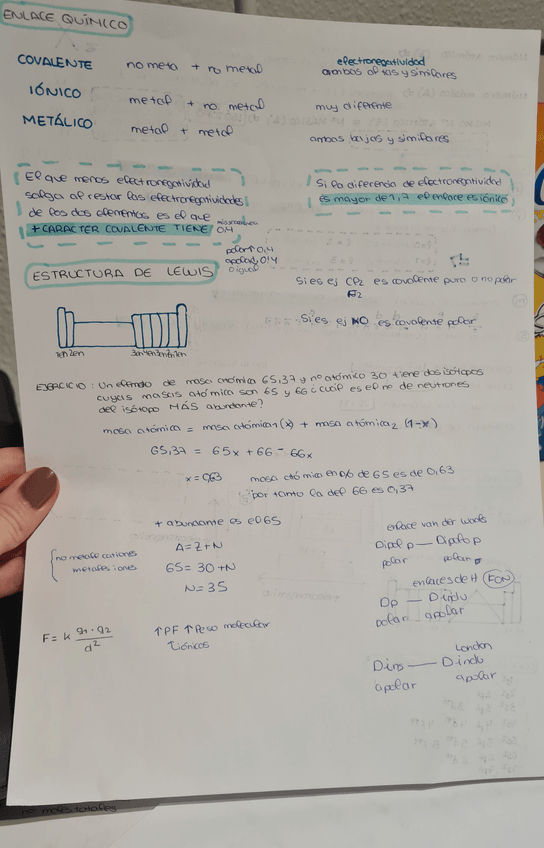 ENLACE QUÍMICO
COVALENTE no meta + no metal electronegatividad ambas altas y similares
IÓNICO metal + no metal muy diferente
METÁLICO metal + metal ambas bajas y similares
El que menos electronegatividad
salga al restar las electronegatividades
de los dos elementos es el que
+ CARACTER COVALENTE TIENE 0,4
Si la diferencia de electronegatividad
es mayor de 1,7 el enlace es iónico
polar ↑ 0,4
apolar ↓ 0,4
o igual
ESTRUCTURA DE LEWIS
Si es ej Cl2 es covalente puro o no polar
F2
Si es ej NO es covalente polar
EJERCICIO: Un elemento de masa atómica 65,37 y nº atómico 30 tiene dos isótopos
cuyas masas atómica son 65 y 66 ¿cuál es el no de neutrones
del isótopo MÁS abundante?
masa atómica = masa atómica1 (x) + masa atómica2 (1-x)
65,37 = 65x + 66 - 66x
x = 0,63 masa atómica en % de 65 es de 0,63
por tanto la del 66 es 0,37
+ abundante es el 65
A = Z + N
65 = 30 + N
N = 35
no metales cationes
metales iones
F = K q1 · q2
d²
↑PF ↑Peso molecular
↑iónicos
enlace van der waals
Dipol p — Dipolo p
polar polar
enlaces de H FON
Dp — Dindu
polar apolar
London
Dins — Dindu
apolar apolar
no moles totales